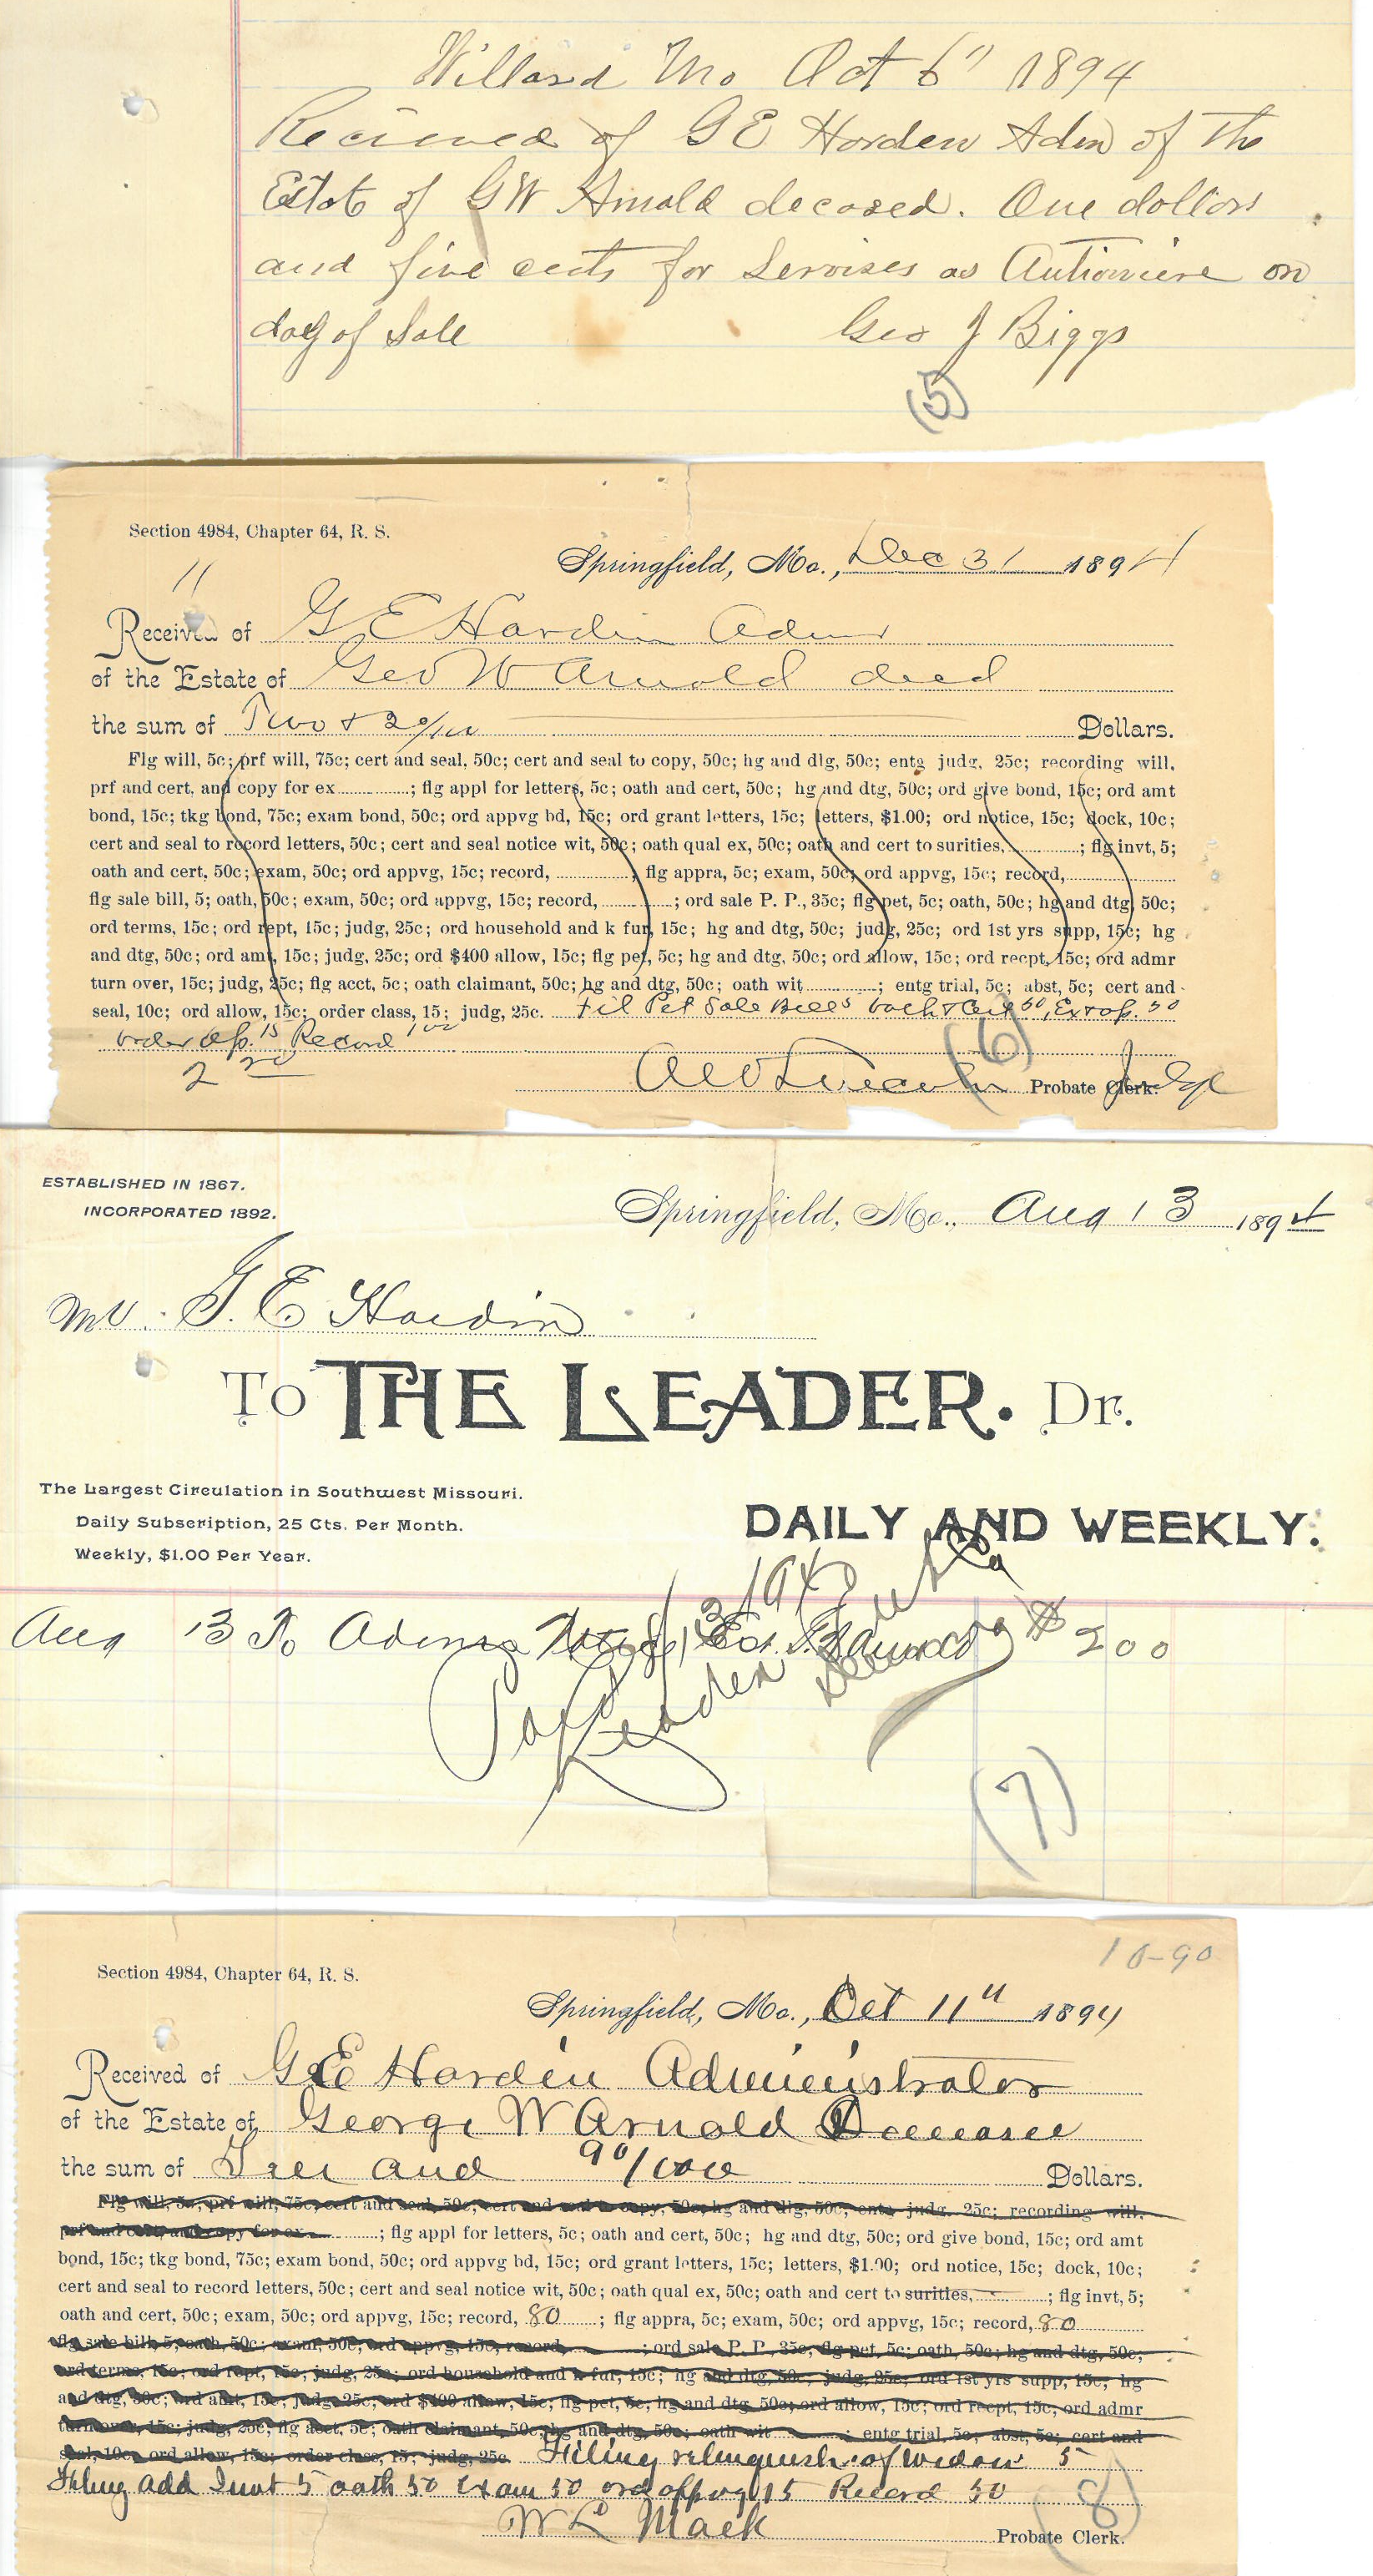 Willard Mo Oct 6" 1894
Recieved of G E Horden Adm of the
Estate of G W Arnold decased. One dollors
and five cents for Servises as Autioniere on
day of Sale Geo J Biggs
(5)
Section 4984, Chapter 64, R. S.
Springfield, Mo., Dec 31 1894
11
Received of G E Hardin Admr
of the Estate of Geo W Arnold decd
the sum of Two & 20/100 Dollars.
Flg will, 5c; prf will, 75c; cert and seal, 50c; cert and seal to copy, 50c; hg and dtg, 50c; entg judg, 25c; recording will,
prf and cert, and copy for ex ; flg appl for letters, 5c; oath and cert, 50c; hg and dtg, 50c; ord give bond, 15c; ord amt
bond, 15c; tkg bond, 75c; exam bond, 50c; ord appvg bd, 15c; ord grant letters, 15c; letters, $1.00; ord notice, 15c; dock, 10c;
cert and seal to record letters, 50c; cert and seal notice wit, 50c; oath qual ex, 50c; oath and cert to surities, ; flg invt, 5;
oath and cert, 50c; exam, 50c; ord appvg, 15c; record, ; flg appra, 5c; exam, 50c; ord appvg, 15c; record,
flg sale bill, 5; oath, 50c; exam, 50c; ord appvg, 15c; record, ; ord sale P. P., 35c; flg pet, 5c; oath, 50c; hg and dtg, 50c;
ord terms, 15c; ord rept, 15c; judg, 25c; ord household and k fur, 15c; hg and dtg, 50c; judg, 25c; ord 1st yrs supp, 15c; hg
and dtg, 50c; ord amt, 15c; judg, 25c; ord $400 allow, 15c; flg pet, 5c; hg and dtg, 50c; ord allow, 15c; ord recpt, 15c; ord admr
turn over, 15c; judg, 25c; flg acct, 5c; oath claimant, 50c; hg and dtg, 50c; oath wit ; entg trial, 5c; abst, 5c; cert and
seal, 10c; ord allow, 15c; order class, 15; judg, 25c. Fil Pet Sale Bill 5 oath & Cert 50, Ex 50
order Ap. 15 Record 1.00
2 20
(6)
Probate Clerk. Judge
ESTABLISHED IN 1867.
INCORPORATED 1892.
Springfield, Mo., Aug 13 1894
Mr. G. E Hardin
To THE LEADER. Dr.
The Largest Circulation in Southwest Missouri.
Daily Subscription, 25 Cts. Per Month.
Weekly, $1.00 Per Year.
DAILY AND WEEKLY.
Aug 13 To Admrs Notice, Est. $ 200
Paid
Leader
(7)
10-90
Section 4984, Chapter 64, R. S.
Springfield, Mo., Oct 11" 1894
Received of G E Hardin Administrator
of the Estate of George W Arnold Deceased
the sum of Ten and 90/100 Dollars.
Flg will, 5c; prf will, 75c; cert and seal, 50c; cert and seal to copy, 50c; hg and dtg, 50c; entg judg. 25c; recording will.
prf and cert, and copy for ex ; flg appl for letters, 5c; oath and cert, 50c; hg and dtg, 50c; ord give bond, 15c; ord amt
bond, 15c; tkg bond, 75c; exam bond, 50c; ord appvg bd, 15c; ord grant letters, 15c; letters, $1.00; ord notice, 15c; dock, 10c;
cert and seal to record letters, 50c; cert and seal notice wit, 50c; oath qual ex, 50c; oath and cert to surities, ; flg invt, 5;
oath and cert, 50c; exam, 50c; ord appvg, 15c; record, 80 ; flg appra, 5c; exam, 50c; ord appvg, 15c; record, 80
flg sale bill, 5; oath, 50c; exam, 50c; ord appvg, 15c; record, ; ord sale P. P., 35c; flg pet, 5c; oath, 50c; hg and dtg, 50c;
ord terms, 15c; ord rept, 15c; judg, 25c; ord household and k fur, 15c; hg and dtg, 50c; judg, 25c; ord 1st yrs supp, 15c; hg
and dtg, 50c; ord amt, 15c; judg, 25c; ord $400 allow, 15c; flg pet, 5c; hg and dtg, 50c; ord allow, 15c; ord recpt, 15c; ord admr
turn over, 15c; judg, 25c; flg acct, 5c; oath claimant, 50c; hg and dtg, 50c; oath wit ; entg trial, 5c; abst, 5c; cert and
seal, 10c; ord allow, 15c; order class, 15; judg, 25c. Filing relinquish. of widow 5
Filing add Invt 5 oath 50 Exam 50 ord appvg 15 Record 50
W L Mack Probate Clerk.
(8)